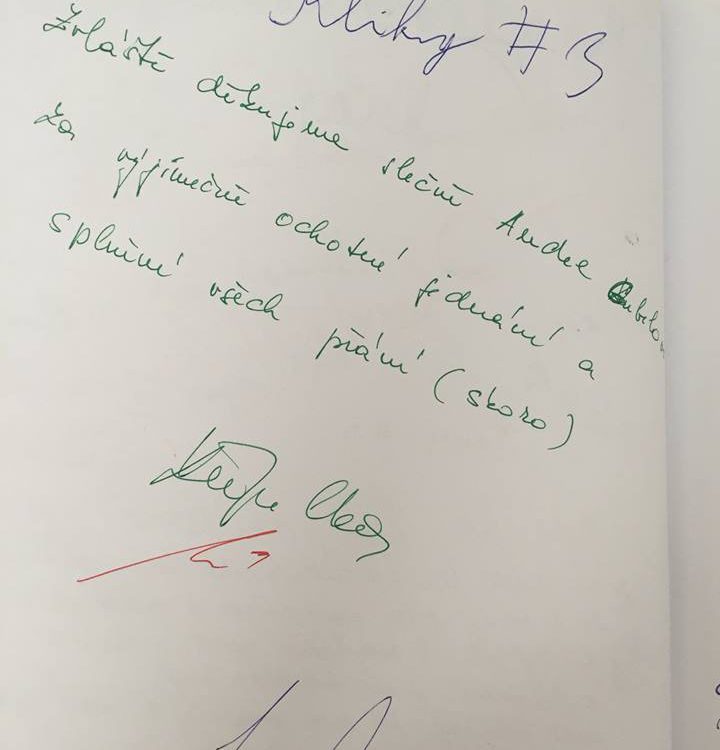 #3
Zvláště děkujeme slečně Andree
za výjimečně ochotné jednání a
splnění všech přání (skoro)